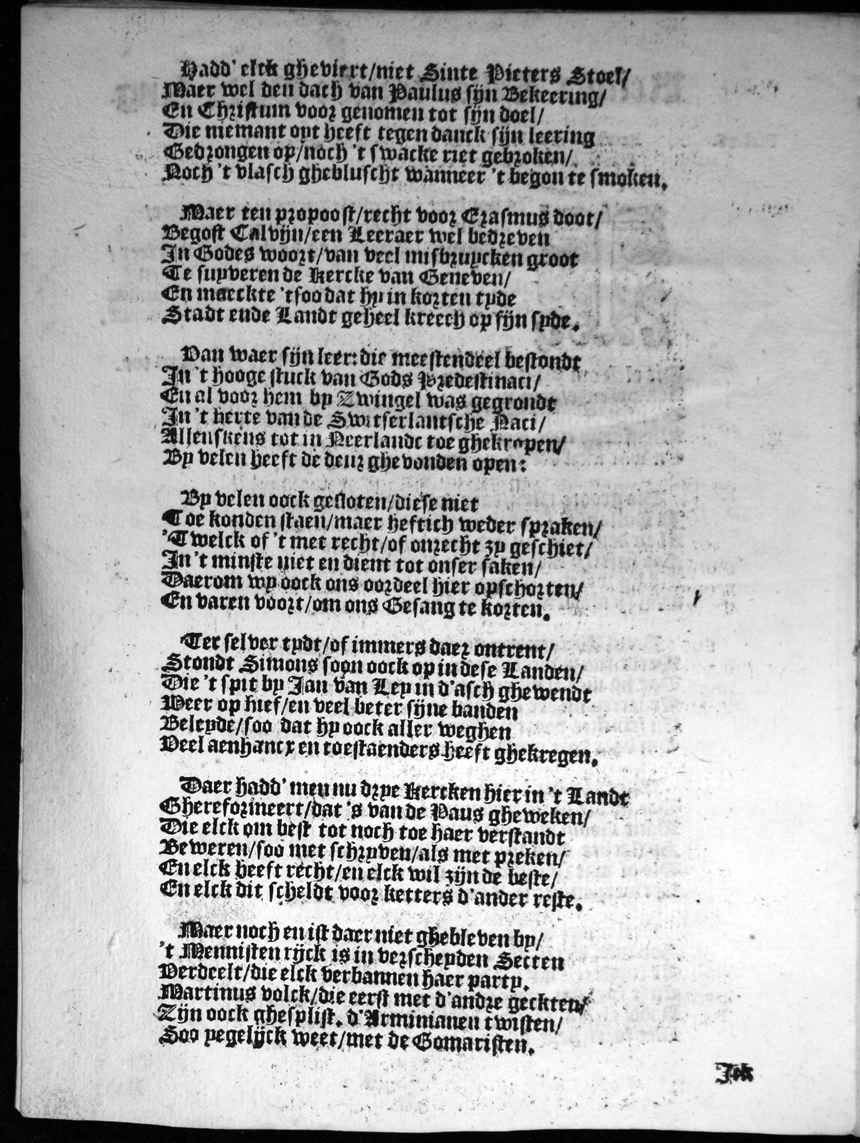 Hadd' elck gheviert/niet Sinte Pieters Stoel/
Maer wel den dach van Paulus sijn Bekeering/
En Christum voor genomen tot sijn doel/
Die niemant oyt heeft tegen danck sijn leering
Gedrongen op/noch 't swacke riet gebroken/
Noch 't vlasch ghebluscht wanneer 't begon te smoken.
Maer ten propoost/recht voor Erasmus doot/
Begost Calvijn/een Leeraer wel bedreven
In Godes woort/van veel misbruycken groot
Te suyveren de Kercke van Geneven/
En maeckte 'tsoo dat hy in korten tyde
Stadt ende Landt geheel kreech op sijn syde.
Van waer sijn leer: die meestendeel bestondt
In 't hooge stuck van Gods Predestinaci/
En al voor hem by Zwingel was gegrondt
In 't herte van de Switserlantsche Naci/
Allenskens tot in Neerlandt toe ghekropen/
By velen heeft de deur ghevonden open:
By velen oock gesloten/diese niet
Toe konden staen/maer heftich weder spraken/
'Twelck of 't met recht/of onrecht zy geschiet/
In 't minste niet en dient tot onser saken/
Daerom wy oock ons oordeel hier opschorten/
En varen voort/om ons Gesang te korten.
Ter selver tydt/of immers daer ontrent/
Stondt Simons soon oock op in dese Landen/
Die 't spit by Jan van Ley in d'asch ghewendt
Weer op hief/en veel beter sijne banden
Beleyde/soo dat hy oock aller weghen
Veel aenhancx en toestaenders heeft ghekregen.
Daer hadd' men nu drye Kercken hier in 't Landt
Ghereformeert/dat 's van de Paus gheweken/
Die elck om best tot noch toe haer verstandt
Beweren/soo met schryven/als met preken/
En elck heeft recht/en elck wil zijn de beste/
En elck dit scheldt voor ketters d'ander reste.
Maer noch en ist daer niet ghebleven by/
't Mennisten ryck is in verscheyden Secten
Verdeelt/die elck verbannen haer party.
Martinus volck/die eerst met d'andre geckten/
Zijn oock ghesplist. d'Arminianen twisten/
Soo yegelijck weet/met de Gomaristen.
Ick